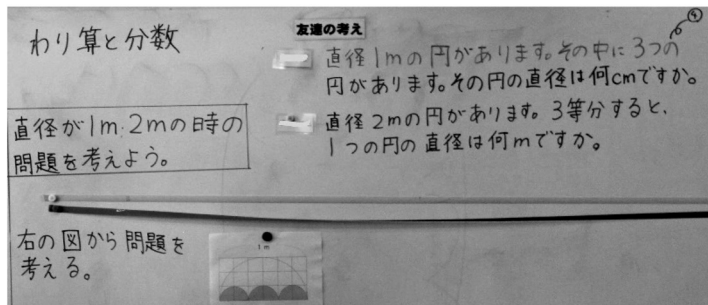 わり算と分数
友達の考え
④
直径1mの円があります。その中に3つの
円があります。その円の直径は何cmですか。
直径2mの円があります。3等分すると、
1つの円の直径は何mですか。
直径が1m、2mの時の
問題を考えよう。
右の図から問題を
考える。
1m